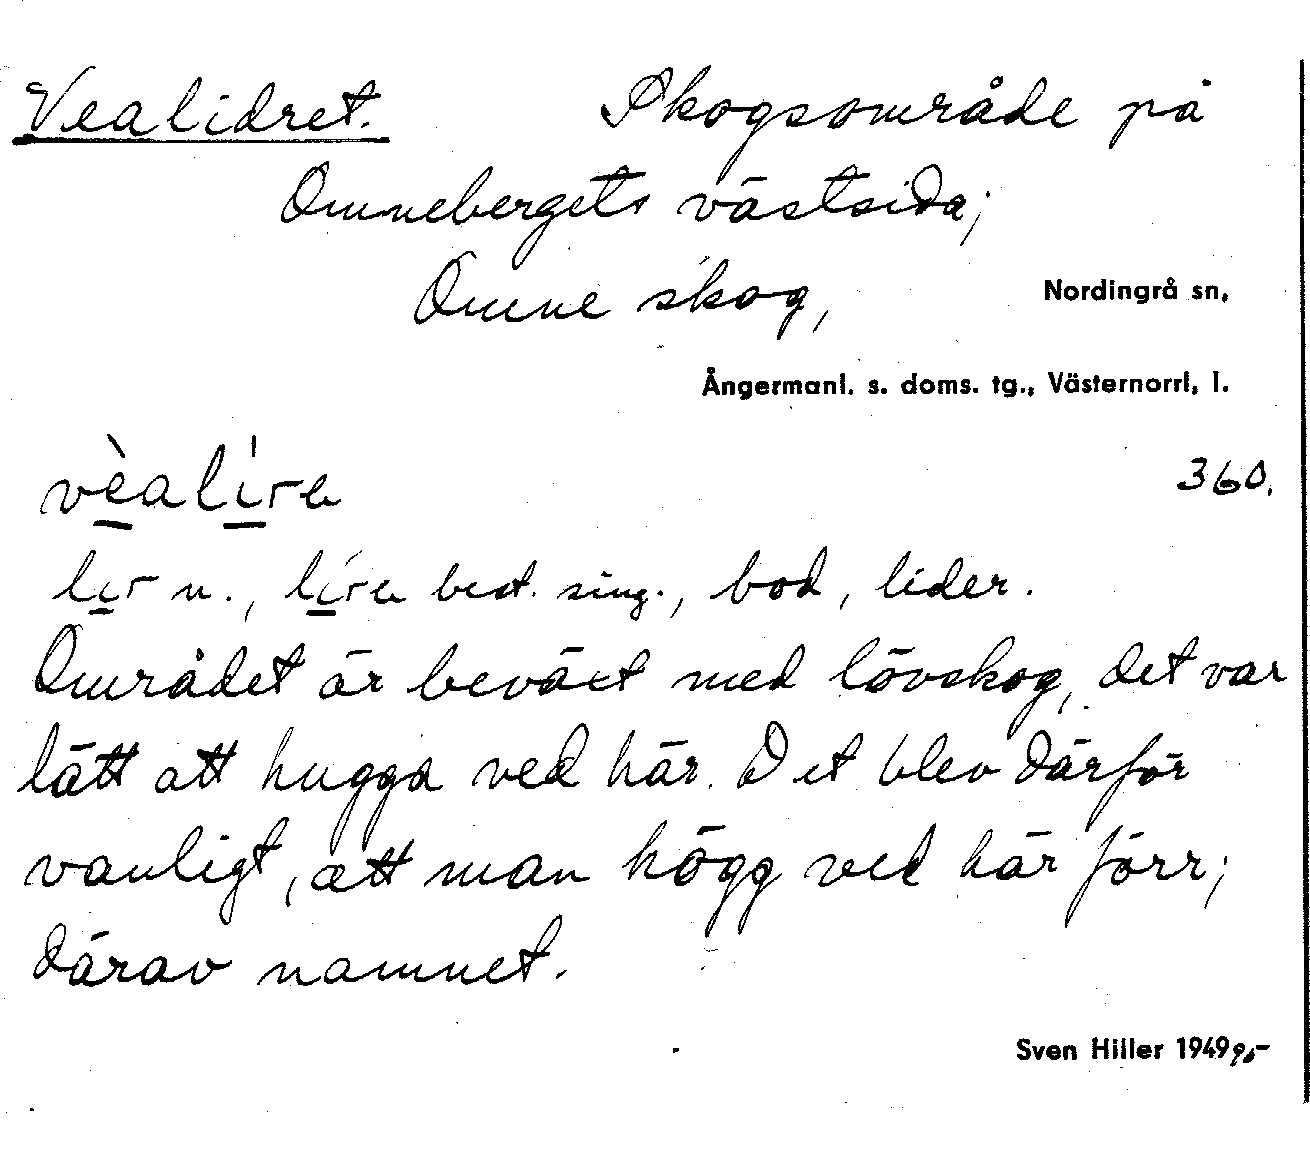 Vealidret. Skogsområde på
Omnebergets västsida;
Omne skog, Nordingrå sn,
Ångermanl. s. doms. tg., Västernorrl, l.
vèalíra 360.
lir n., líra best. sing., bod, lider.
Området är beväxt med lövskog, det var
lätt att hugga ved här. Det blev därför
vanligt, att man högg ved här förr;
därav namnet.
Sven Hiller 1949